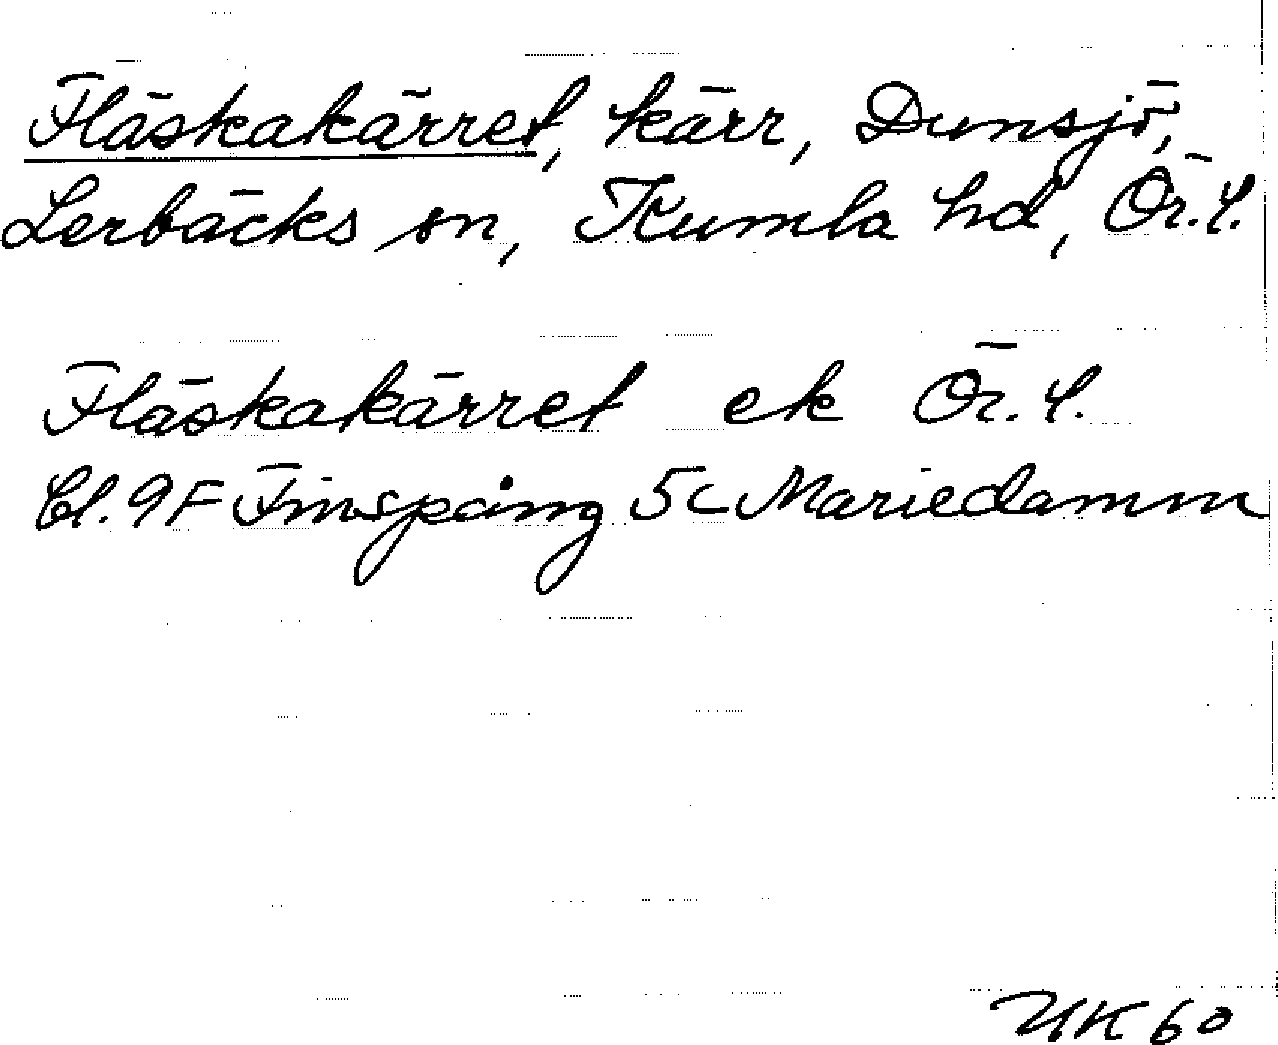 Fläskakärret, kärr, Dunsjö,
Lerbäcks sn, Kumla hd, Ör.l.
Fläskakärret ek Ör.l.
Bl. 9F Finspång 5c Mariedamm
UK 60